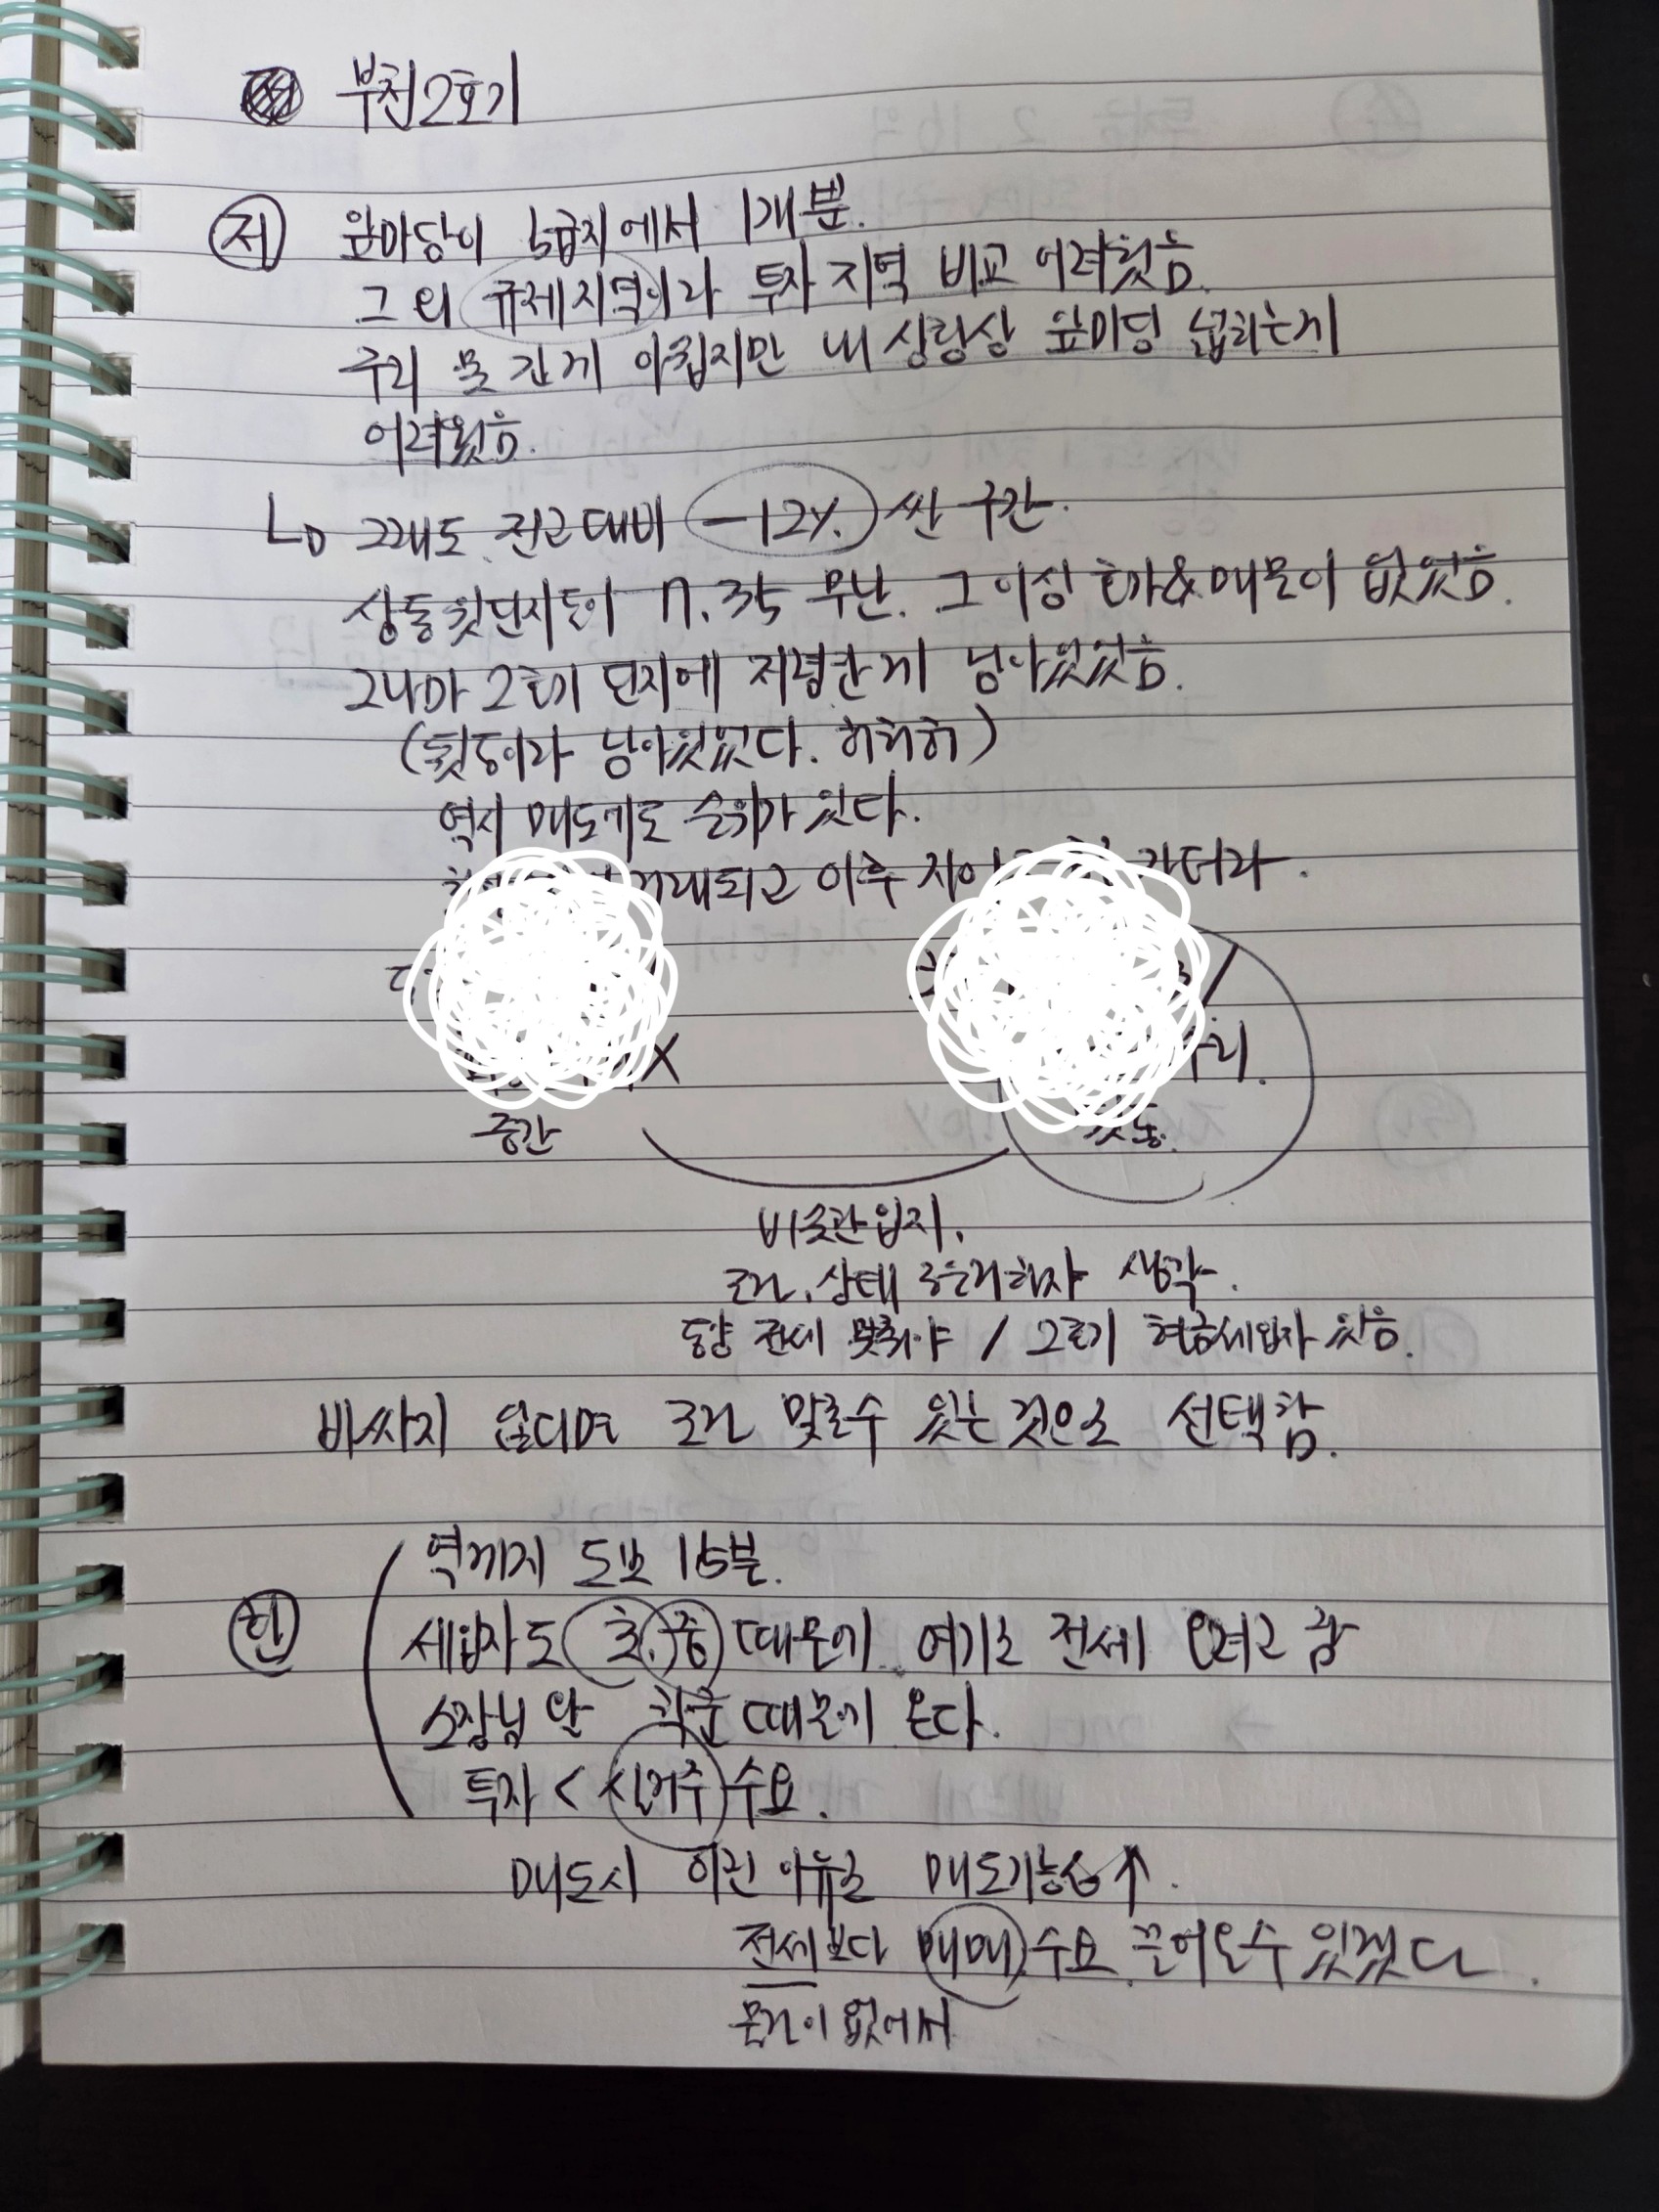 부천2호기
저 앞마당이 5급지에서 1개뿐.
그 외 규제지역이라 투자 지역 비교 어려웠음.
구리 못 간게 아쉽지만 내 상황상 앞마당 넓히는게
어려웠음.
그래도 전고대비 -12% 싼 구간.
상동 윗단지들이 17. 35 무난. 그 이상 호가&매물이 없었음.
그나마 2호기 단지에 저평한게 남아있었음.
(뒷동이라 남아있었다. 허허허)
역시 매도에도 순위가 있다.
거래되고 이후 가더라.
X
중간
수리.
뒷동.
비슷한 입지.
조건, 상태 좋은거하자 생각.
동향 전세 맞춰야 / 2호기 현금세입자 있음.
비싸지 않다며 조건 맞출수 있는 것으로 선택함.
역까지 도보 15분.
환 세입자도 초.중 때문에 여기로 전세 오려고 함
소장님 왈 학군 때문에 온다.
투자 < 실거주 수요.
매도시 이런 이유로 매도가능성↑.
전세보다 매매 수요 끌어올수 있겠다.
물건이 없어서